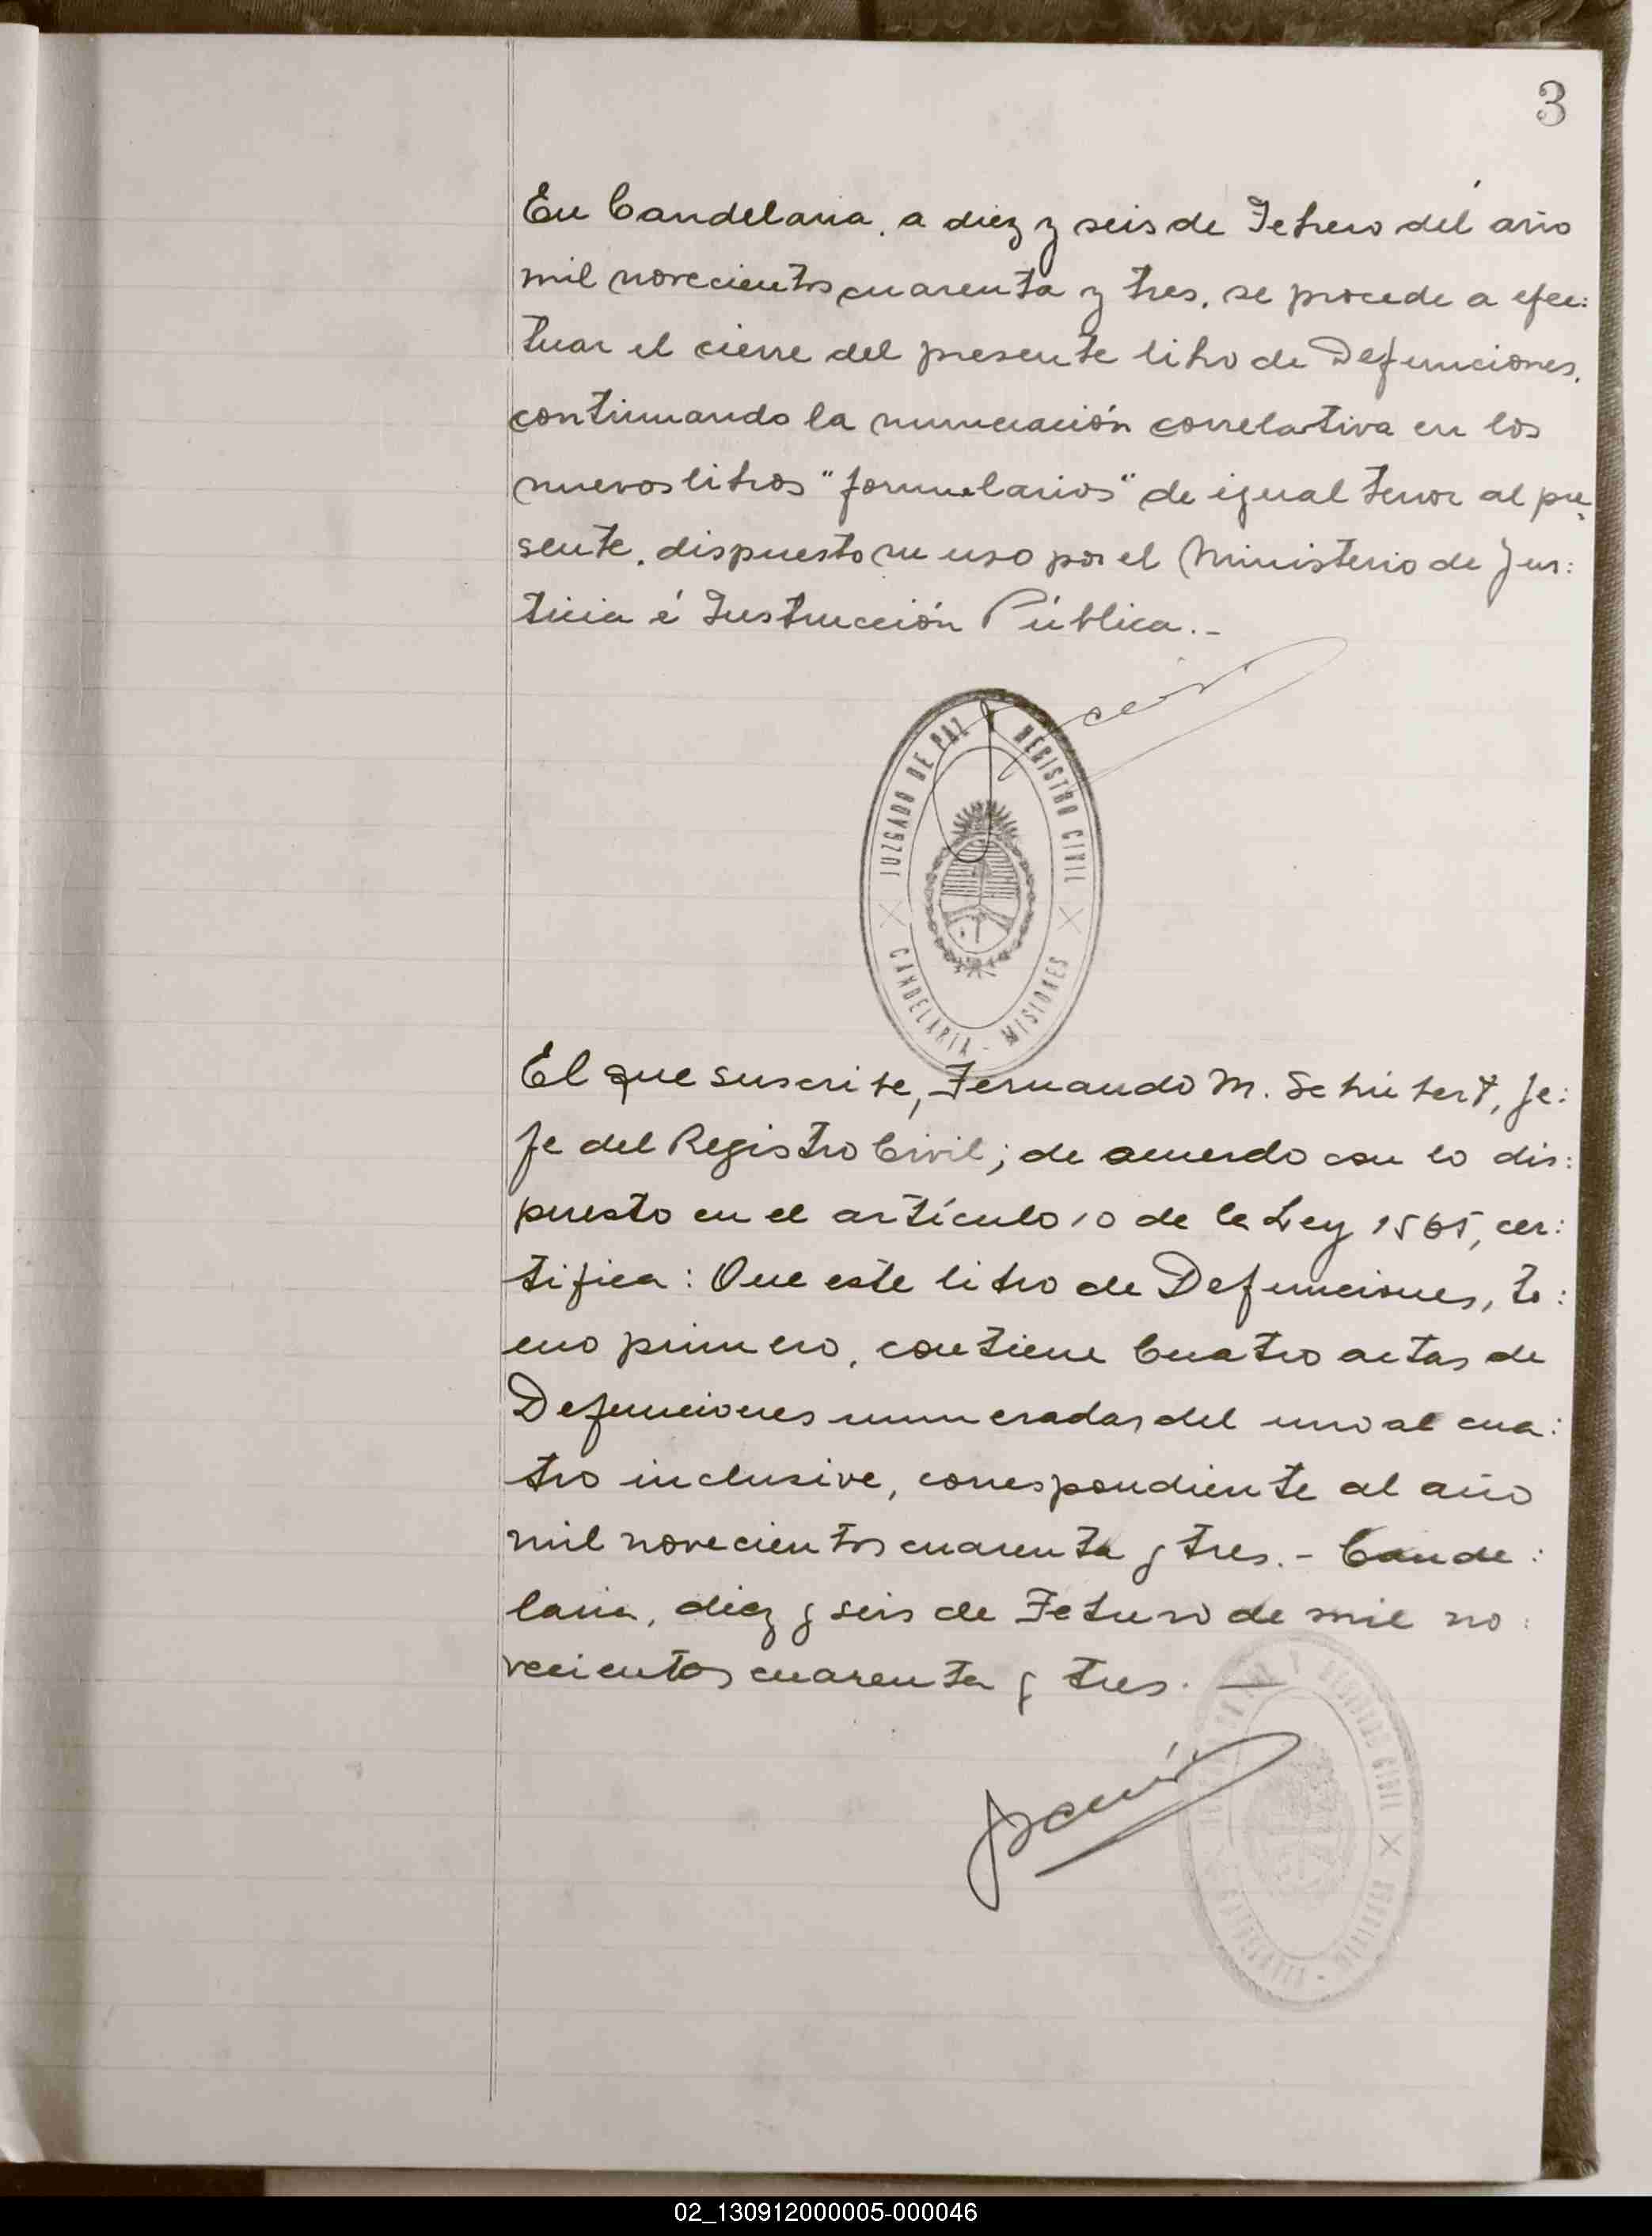 3
En Candelaria, a diez y seis de Febrero del año
mil novecientos cuarenta y tres, se procede a efec:
tuar el cierre del presente libro de Defunciones,
continuando la numeración correlativa en los
nuevos libros "formularios" de igual tenor al pre
sente, dispuesto su uso por el Ministerio de Jus:
ticia é Instrucción Pública.-
JUZGADO DE PAZ Y REGISTRO CIVIL
CANDELARIA - MISIONES
El que suscribe, Fernando M. Schubert, Je:
fe del Registro Civil; de acuerdo con lo dis:
puesto en el artículo 10 de la Ley 1565, cer:
tifica: Que este libro de Defunciones, to:
mo primero, contiene Cuatro actas de
Defunciones numeradas del uno al cua:
tro inclusive, correspondiente al año
mil novecientos cuarenta y tres.- Cande:
laria, diez y seis de Febrero de mil no:
vecientos cuarenta y tres.—
REGISTRO CIVIL
CANDELARIA - MISIONES
02_130912000005-000046